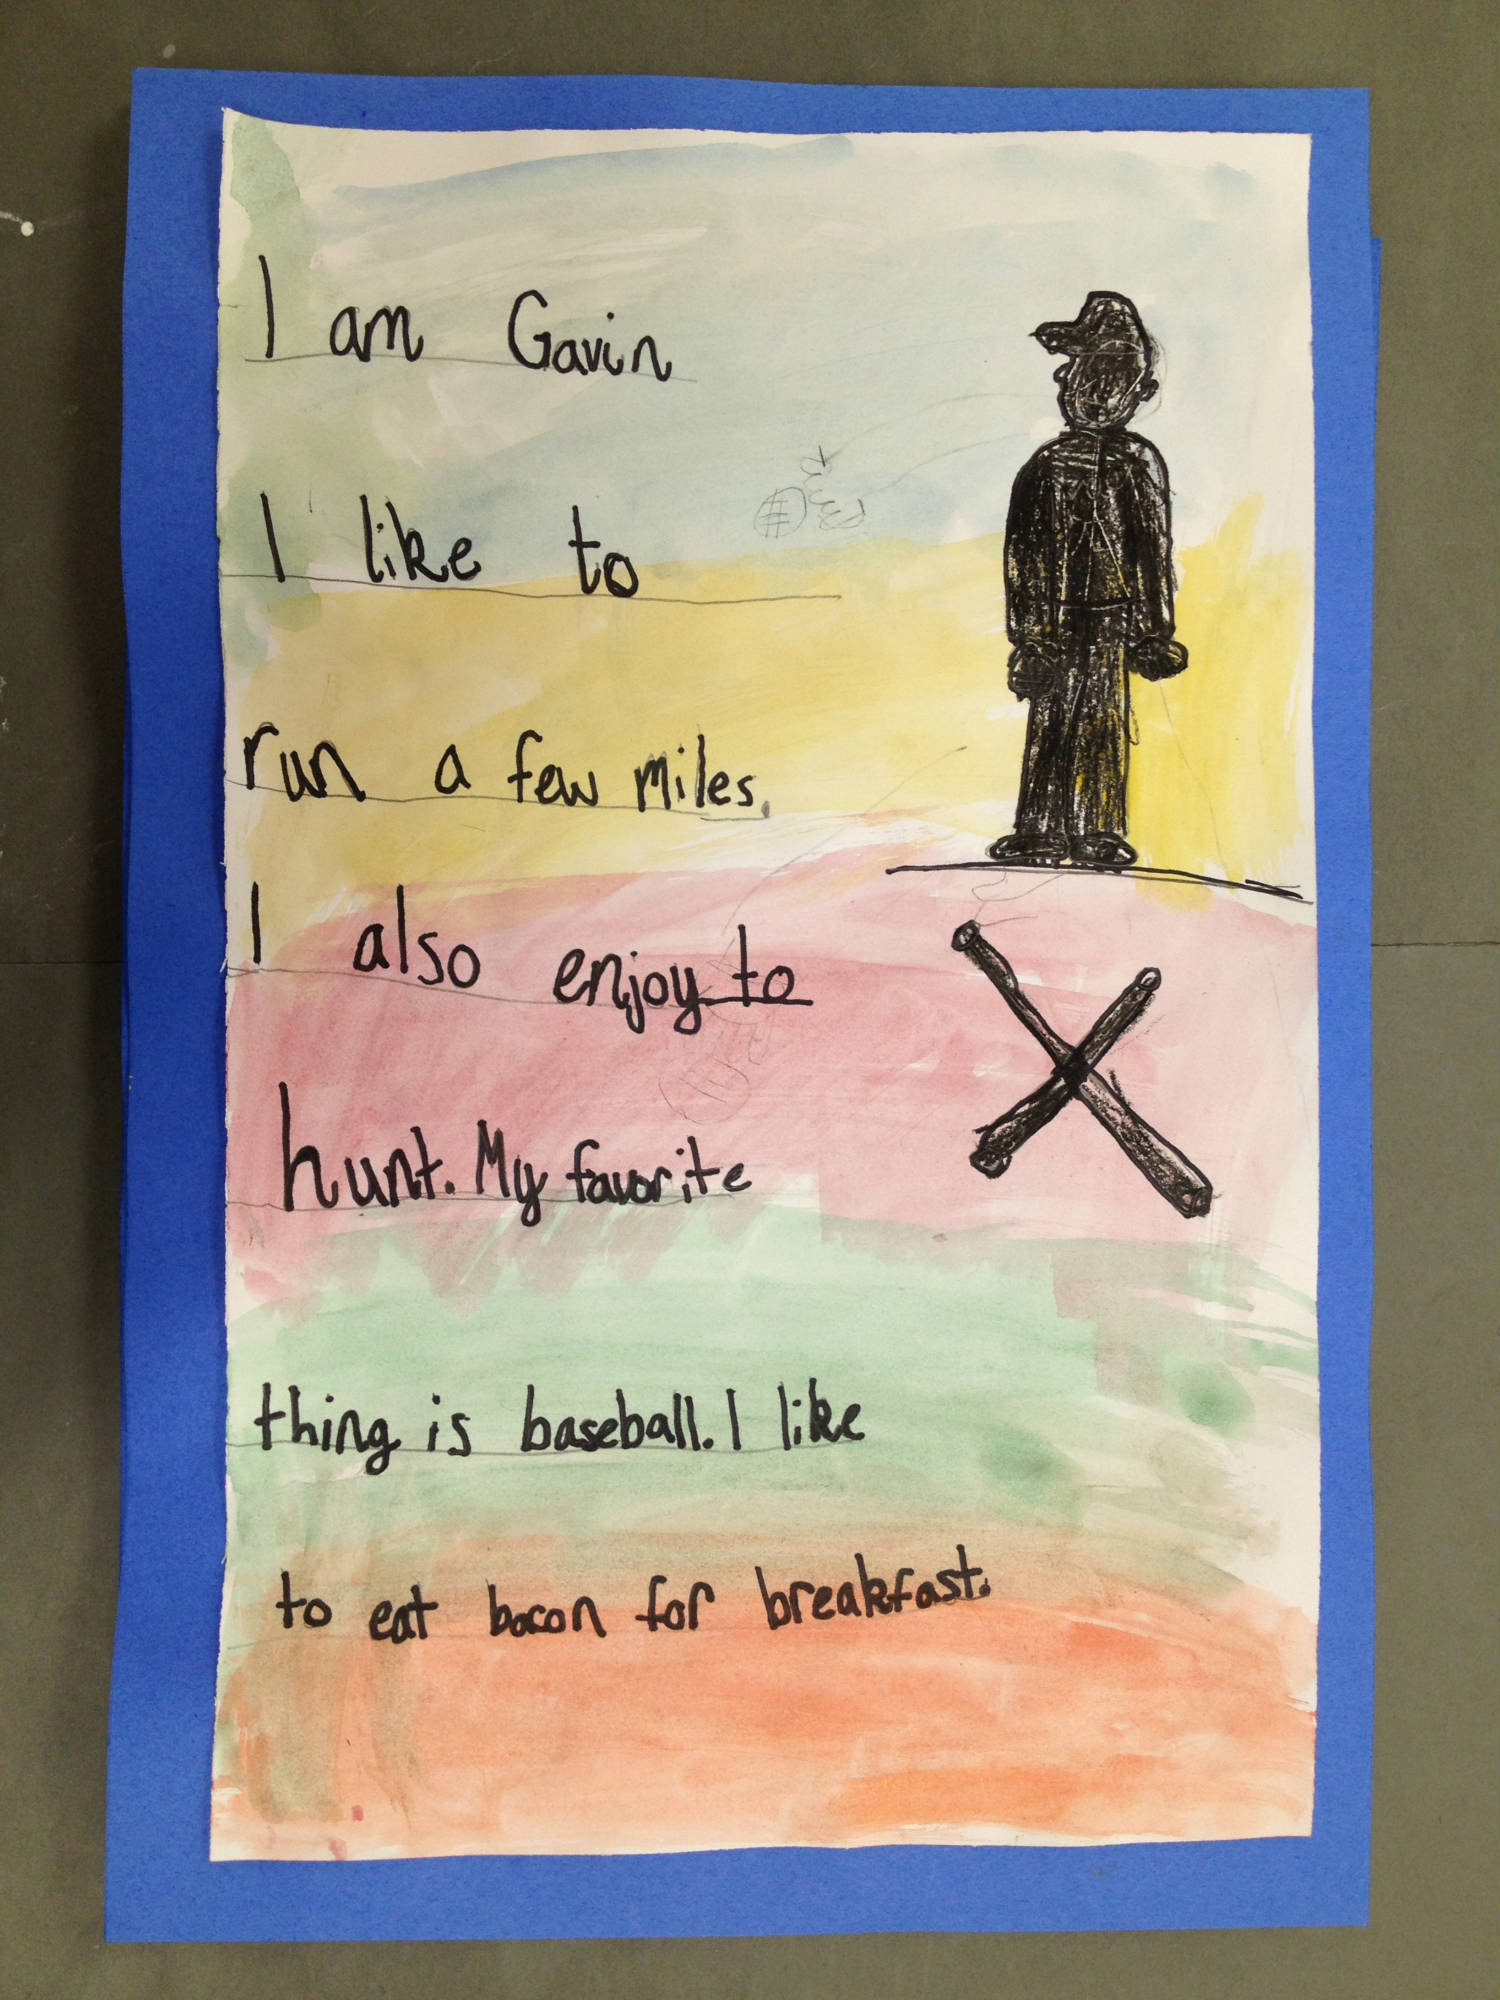 I am Gavin
I like to
run a few miles.
I also enjoy to
hunt. My favorite
thing is baseball. I like
to eat bacon for breakfast.